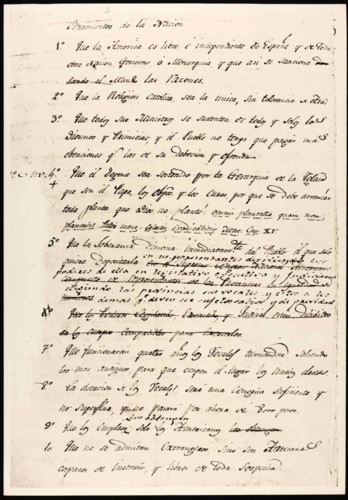 Sentimientos de la Nación
1.º Que la America es libre é independiente de España y de toda
otra Nacion, Govierno ó Monarquia, y que asi se sancione,
dando al Mundo las razones.
2.º Que la Religion Catolica sea la unica, sin tolerancia de otra
3.º Que todos sus Ministros se sustenten de todos, y solos los
Diezmos y Primicias, y el Pueblo no tenga que pagar mas
obenciones que las de su debocion y ofrenda.
4.º Que el Dogma sea sostenido por la Gerarquia de la Iglesia
que son el Papa, los Obispos y los Curas, por que se debe arrancar
toda planta que Dios no plantó: omnis plantatis quam non
plantabit Pater meus Celestis Cradicabitur Mat. Cap. XV.
5.º Que la Soberania dimana inmediatamente del Pueblo, el que solo
quiere depositarla en sus representantes dividiendo los
poderes de ella en Legislativo
eligiendo las provincias sus vocales, y estos a los
demas, que deven ser sujetos sabios y de providad
7.º Que funcionaran quatro años los Vocales turnandose, saliendo
los mas antiguos para que ocupen el lugar los nuevos electos
8.º La dotacion de los Vocales, será una congrua suficiente y
no superflua, y no pasará por ahora de 8000 pesos.
9.º Que los Empleos los obtengan solo los Americanos
10. Que no se admitan Extrangeros, sino son Artesanos
capaces de instruir, y libres de toda sospecha.